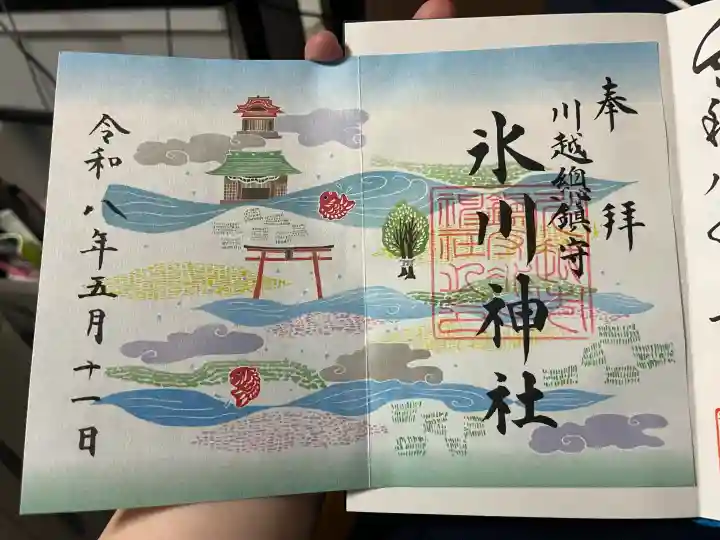 奉拝
川越總鎮守
氷川神社
令和八年五月十一日